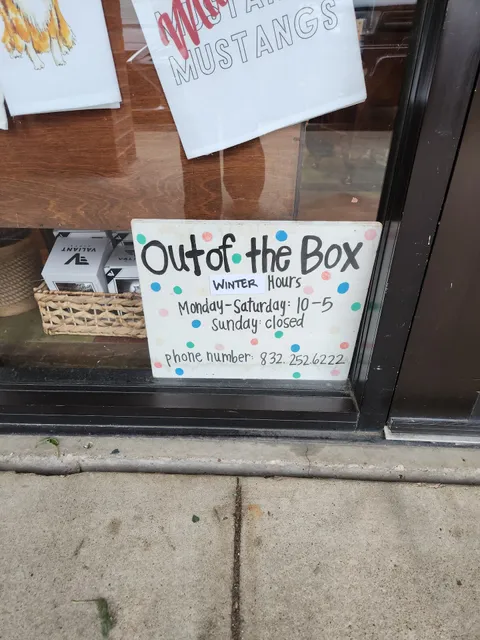 MUSTANGS
MUSTANGS
VALIANT
Out of the Box
WINTER Hours
Monday-Saturday: 10-5
Sunday: closed
phone number: 832.252.6222